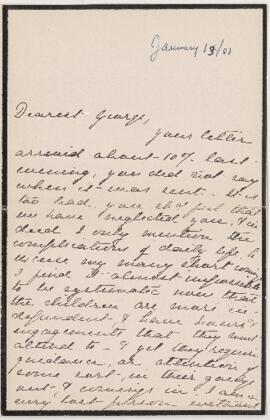 January 13/01
Dearest George,
Your letter
arrived about 10 last
evening, you did not say
when it was sent. It is
too bad you sh'd feel that
we have neglected you. In-
deed I only mention the
complications of daily life to
excuse my many short comings
I find it almost impossible
to be systematic now that
the children are more in-
dependent & have hours &
engagements that they must
attend to - & yet they require
guidance, or attention of
some sort in their goings
out & comings in. I am a
very last person